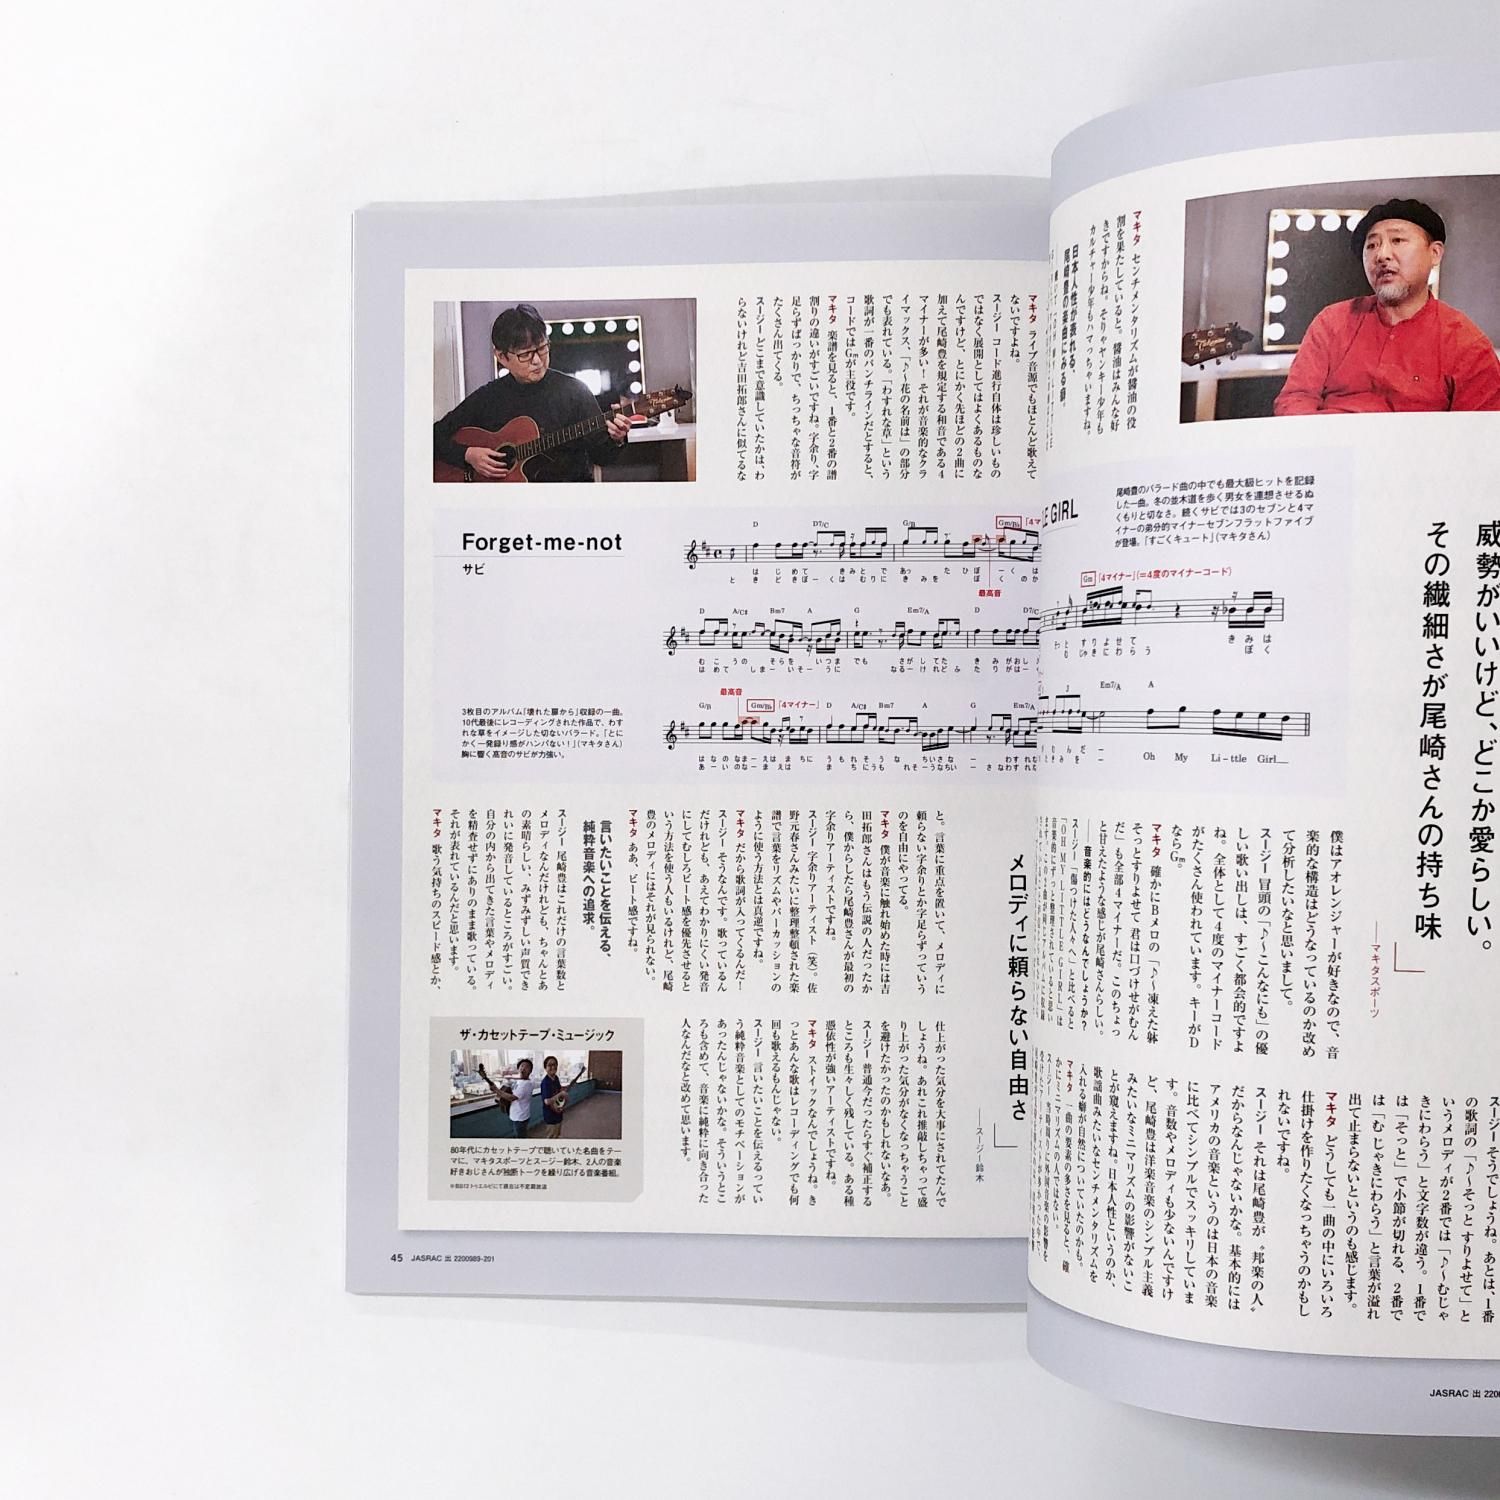 威勢がいいけど、どこか愛らしい。
その繊細さが尾崎さんの持ち味
――マキタスポーツ
マキタ センチメンタリズムが醤油の役
割を果たしていると。醤油はみんな好
きですからね。そりゃヤンキー少年も
カルチャー少年もハマっちゃいますね。
日本人性が表れる、
尾崎豊の楽曲にみる癖。
E GIRL
尾崎豊のバラード曲の中でも最大級ヒットを記録
した一曲。冬の並木道を歩く男女を連想させるぬ
くもりと切なさ。続くサビでは3のセブンと4マ
イナーの弟分的マイナーセブンフラットファイブ
が登場。「すごくキュート」(マキタさん)
Gm 「4マイナー」(=4度のマイナーコード)
すりよせて きみは
むじゃきにわらう ぼく
Em7/A A
Oh My Li-ttle Girl
僕はアオレンジャーが好きなので、音
楽的な構造はどうなっているのか改め
て分析したいなと思いまして。
スージー 冒頭の「♪〜こんなにも」の優
しい歌い出しは、すごく都会的ですよ
ね。全体として4度のマイナーコード
がたくさん使われています。キーがD
ならGm。
マキタ 確かにBメロの「♪〜凍えた躰
そっとすりよせて 君は口づけせがむん
だ」も全部4マイナーだ。このちょっ
と甘えたような感じが尾崎さんらしい。
――音楽的にはどうなんでしょうか?
スージー 「傷つけた人々へ」と比べると
「OH MY LITTLE GIRL」は
スージー そうでしょうね。あとは、1番
の歌詞の「♪〜そっと すりよせて」と
いうメロディが2番では「♪〜むじゃ
きにわらう」と文字数が違う。1番で
は「そっと」で小節が切れる、2番で
は「むじゃきにわらう」と言葉が溢れ
出て止まらないというのも感じます。
マキタ どうしても一曲の中にいろいろ
仕掛けを作りたくなっちゃうのかもし
れないですね。
スージー それは尾崎豊が〝邦楽の人〟
だからなんじゃないかな。基本的には
アメリカの音楽というのは日本の音楽
に比べてシンプルでスッキリしていま
す。音数やメロディも少ないんですけ
ど、尾崎豊は洋楽音楽のシンプル主義
みたいなミニマリズムの影響がないこ
とが窺えますね。日本人性というのか、
歌謡曲みたいなセンチメンタリズムを
入れる癖が自然についていたのかも。
かにミニマリズムの人ではない。
マキタ 一曲の要素の多さを見ると、確
JASRAC 出 2200
マキタ ライブ音源でもほとんど歌えて
ないですよね。
スージー コード進行自体は珍しいもの
ではなく展開としてはよくあるものな
んですけど、とにかく先ほどの2曲に
加えて尾崎豊を規定する和音である4
マイナーが多い!それが音楽的なクラ
イマックス、「♪〜花の名前は」の部分
でも表れている。「わすれな草」という
歌詞が一番のパンチラインだとすると、
コードではGmが主役です。
マキタ 楽譜を見ると、1番と2番の譜
割りの違いがすごいですね。字余り、字
足らずばっかりで、ちっちゃな音符が
たくさん出てくる。
スージー どこまで意識していたかは、わ
らないけれど吉田拓郎さんに似てるな
Forget-me-not
サビ
D D7/C G/B Gm/B♭ 「4マ
はじめて きみとで あっ たひ ぼーくは
ときどきぼーくはむりに きみを ぼくのか
最高音
D A/C♯ Bm7 A G Em7/A D D7/C
むこうの そらを いつま でも さがしてた きみがおし
はめて しまーいそーうに なるーけれど ふ たりがはー
最高音
G/B Gm/B♭ 「4マイナー」 D A/C♯ Bm7 A G Em7/A
はなのなまーえは まちに うもれそうな ちいさな ー わすれな
あーいのなーまえは まちにうも れそーうなちい ー さなわすれ
3枚目のアルバム『壊れた扉から』収録の一曲。
10代最後にレコーディングされた作品で、わす
れな草をイメージした切ないバラード。「とに
かく一発録り感がハンパない!」(マキタさん)
胸に響く高音のサビが力強い。
メロディに頼らない自由さ
――スージー鈴木
と。言葉に重点を置いて、メロディに
頼らない字余りとか字足らずっていう
のを自由にやってる。
マキタ 僕が音楽に触れ始めた時には吉
田拓郎さんはもう伝説の人だったか
ら、僕からしたら尾崎豊さんが最初の
字余りアーティストですね。
スージー 字余りアーティスト(笑)。佐
野元春さんみたいに整理整頓された楽
譜で言葉をリズムやパーカッションの
ように使う方法とは真逆ですね。
マキタ だから歌詞が入ってくるんだ!
スージー そうなんです。歌っているん
だけれども、あえてわかりにくい発音
にしてむしろビート感を優先させると
いう方法を使う人もいるけれど、尾崎
豊のメロディにはそれが見られない。
マキタ ああ、ビート感ですね。
言いたいことを伝える、
純粋音楽への追求。
スージー 尾崎豊はこれだけの言葉数と
メロディなんだけれども、ちゃんとあ
の素晴らしい、みずみずしい声質でき
れいに発音しているところがすごい。
自分の内から出てきた言葉やメロディ
を精査せずにありのまま歌っている。
それが表れているんだと思います。
マキタ 歌う気持ちのスピード感とか、
仕上がった気分を大事にされてたんで
しょうね。あれこれ推敲しちゃって盛
り上がった気分がなくなっちゃうこと
を避けたかったのかもしれないなあ。
スージー 普通今だったらすぐ補正する
ところも生々しく残している。ある種
憑依性が強いアーティストですね。
マキタ ストイックなんでしょうね。き
っとあんな歌はレコーディングでも何
回も歌えるもんじゃない。
スージー 言いたいことを伝えるってい
う純粋音楽としてのモチベーションが
あったんじゃないかな。そういうとこ
ろも含めて、音楽に純粋に向き合った
人なんだなと改めて思います。
ザ・カセットテープ・ミュージック
80年代にカセットテープで聴いていた名曲をテー
マに、マキタスポーツとスージー鈴木、2人の音楽
好きおじさんが独断トークを繰り広げる音楽番組。
※BS12 トゥエルビにて過去は不定期放送
45 JASRAC 出 2200989-201